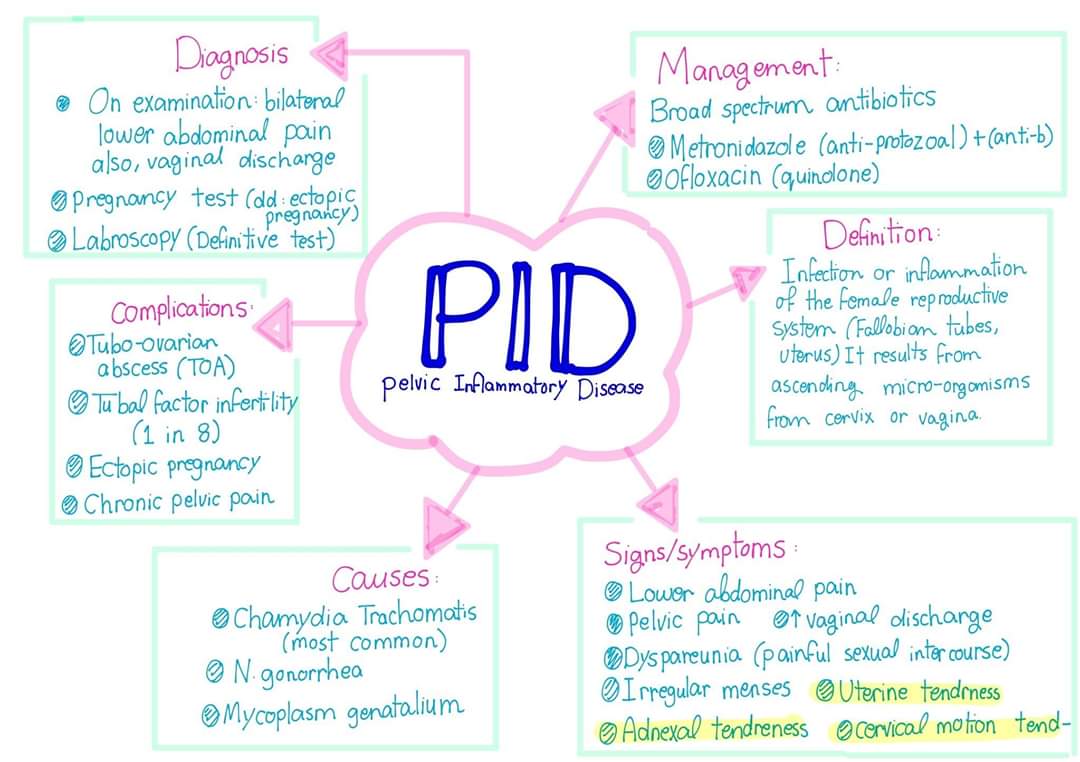 PID
Pelvic Inflammatory Disease
Diagnosis
On examination: bilateral
lower abdominal pain
also, vaginal discharge
Pregnancy test (dd: ectopic
pregnancy)
Labroscopy (Definitive test)
Management:
Broad spectrum antibiotics
Metronidazole (anti-protozoal) + (anti-b)
Ofloxacin (quinolone)
Definition:
Infection or inflammation
of the female reproductive
system (Fallobian tubes,
uterus) It results from
ascending micro-orgomisms
from cervix or vagina.
Complications:
Tubo-ovarian
abscess (TOA)
Tubal factor infertility
(1 in 8)
Ectopic pregnancy
Chronic pelvic pain
Causes:
Chamydia Trachomatis
(most common)
N. gonorrhea
Mycoplasm genatalium
Signs/symptoms:
Lower abdominal pain
Pelvic pain ↑ vaginal discharge
Dyspareunia (painful sexual intercourse)
Irregular menses Uterine tendrness
Adnexal tendreness cervical motion tend-